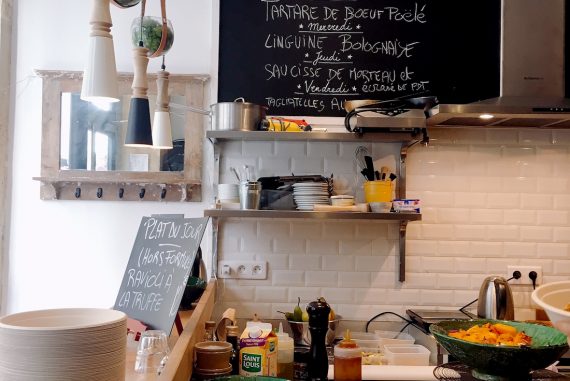 TARTARE DE BOEUF POÊLÉ
* Mercredi *
LINGUINE BOLOGNAISE
* Jeudi *
SAUCISSE DE MORTEAU et
* Vendredi * ECRASÉ DE PDT
TAGLIATELLES AU
PLAT DU JOUR
(HORS FORMULE)
RAVIOLI À
LA TRUFFE
SAINT
LOUIS